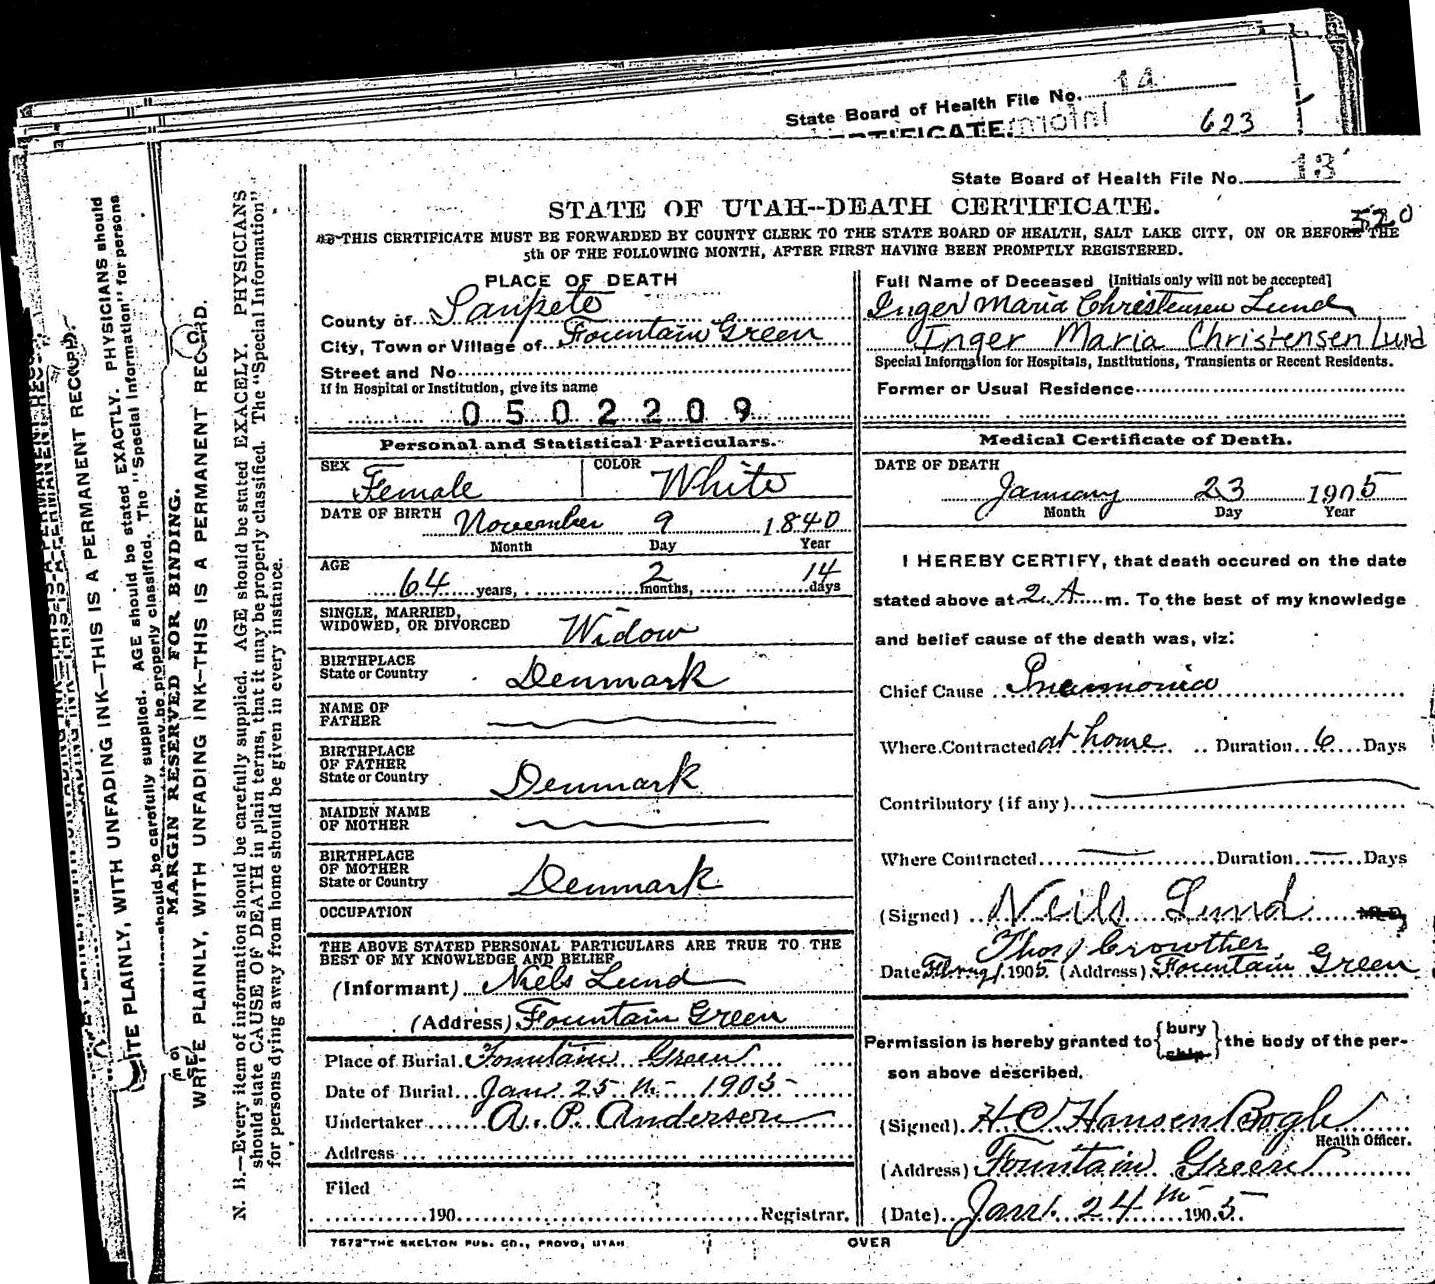 State Board of Health File No. 14
CERTIFICATE
623
State Board of Health File No. 13
STATE OF UTAH--DEATH CERTIFICATE.
520
THIS CERTIFICATE MUST BE FORWARDED BY COUNTY CLERK TO THE STATE BOARD OF HEALTH, SALT LAKE CITY, ON OR BEFORE THE
5th OF THE FOLLOWING MONTH, AFTER FIRST HAVING BEEN PROMPTLY REGISTERED.
PLACE OF DEATH
County of Sanpete
City, Town or Village of Fountain Green
Street and No.
If in Hospital or Institution, give its name
0502209
Personal and Statistical Particulars.
SEX Female COLOR White
DATE OF BIRTH November 9 1840
Month Day Year
AGE 64 years, 2 months, 14 days
SINGLE, MARRIED,
WIDOWED, OR DIVORCED Widow
BIRTHPLACE
State or Country Denmark
NAME OF
FATHER
BIRTHPLACE
OF FATHER
State or Country Denmark
MAIDEN NAME
OF MOTHER
BIRTHPLACE
OF MOTHER
State or Country Denmark
OCCUPATION
THE ABOVE STATED PERSONAL PARTICULARS ARE TRUE TO THE
BEST OF MY KNOWLEDGE AND BELIEF
(Informant) Niels Lund
(Address) Fountain Green
Place of Burial Fountain Green
Date of Burial Jan 25 th 1905
Undertaker A. P. Anderson
Address
Filed
190 Registrar.
7572 THE SKELTON PUB. CO., PROVO, UTAH
Full Name of Deceased [Initials only will not be accepted]
Inger Maria Christensen Lund
Inger Maria Christensen Lund
Special Information for Hospitals, Institutions, Transients or Recent Residents.
Former or Usual Residence
Medical Certificate of Death.
DATE OF DEATH
January 23 1905
Month Day Year
I HEREBY CERTIFY, that death occured on the date
stated above at 2. A. m. To the best of my knowledge
and belief cause of the death was, viz:
Chief Cause Pneumonia
Where Contracted at home Duration 6 Days
Contributory (if any)
Where Contracted Duration Days
(Signed) Neils Lund M.D.
Thos Crowther
Date 1905 (Address) Fountain Green
Permission is hereby granted to {bury ship} the body of the per-
son above described.
(Signed) H C Hansen Bogh
Health Officer.
(Address) Fountain Green
(Date) Jan. 24 th 1905.
OVER
WRITE PLAINLY, WITH UNFADING INK—THIS IS A PERMANENT RECORD. PHYSICIANS should
carefully supplied. AGE should be stated EXACTLY. "Special Information" for persons
should be carefully supplied may be properly classified. The
MARGIN RESERVED FOR BINDING.
WRITE PLAINLY, WITH UNFADING INK—THIS IS A PERMANENT RECORD.
N. B.—Every item of information should be carefully supplied. AGE should be stated EXACELY. PHYSICIANS
should state CAUSE OF DEATH in plain terms, that it may be properly classified. The "Special Information"
for persons dying away from home should be given in every instance.